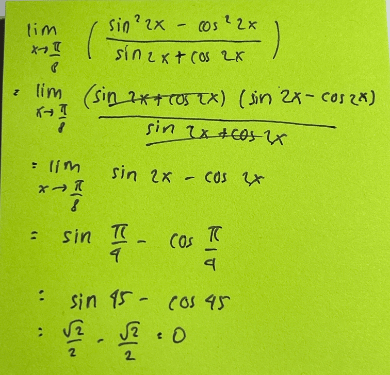 lim x→π/8 ( (sin² 2x - cos² 2x) / (sin 2x + cos 2x) )
= lim x→π/8 (sin 2x + cos 2x) (sin 2x - cos 2x) / (sin 2x + cos 2x)
= lim x→π/8 sin 2x - cos 2x
= sin π/4 - cos π/4
= sin 45 - cos 45
= √2/2 - √2/2 = 0